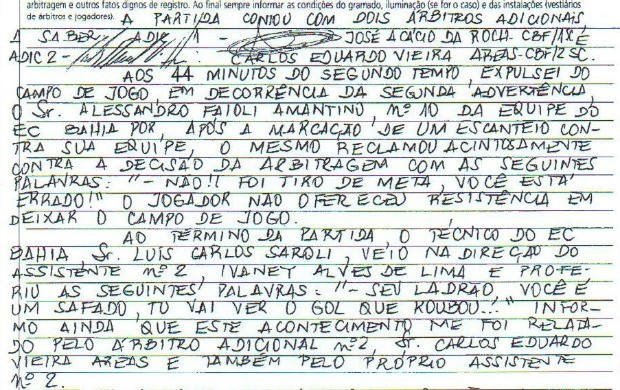 arbitragem e outros fatos dignos de registro. Ao final sempre informar as condições do gramado, iluminação (se for o caso) e das instalações (vestiários
de árbitros e jogadores).
A PARTIDA CONTOU COM DOIS ÁRBITROS ADICIONAIS
A SABER, ADIC 1 - JOSÉ ACÁCIO DA ROCH. CBF/1 SC E
ADIC 2 - CARLOS EDUARDO VIEIRA AREAS - CBF/2 SC.
AOS 44 MINUTOS DO SEGUNDO TEMPO, EXPULSEI DO
CAMPO DE JOGO, EM DECORRÊNCIA DA SEGUNDA ADVERTÊNCIA,
O Sr. ALESSANDRO FAIOLI AMANTINO, Nº 10 DA EQUIPE DO
EC BAHIA POR, APÓS A MARCAÇÃO DE UM ESCANTEIO CON-
TRA SUA EQUIPE, O MESMO RECLAMOU ACINTOSAMENTE
CONTRA A DECISÃO DA ARBITRAGEM COM AS SEGUINTES
PALAVRAS: "- NÃO!! FOI TIRO DE META, VOCÊ ESTÁ
ERRADO!" O JOGADOR NÃO OFERECEU RESISTÊNCIA EM
DEIXAR O CAMPO DE JOGO.
AO TÉRMINO DA PARTIDA, O TÉCNICO DO EC
BAHIA, Sr. LUIS CARLOS SAROLI, VEIO NA DIREÇÃO DO
ASSISTENTE Nº 2, IVANEY ALVES DE LIMA E PROFE-
RIU AS SEGUINTES PALAVRAS: "- SEU LADRÃO, VOCÊ É
UM SAFADO, TU VAI VER O GOL QUE ROUBOU..." INFOR-
MO AINDA QUE ESTE ACONTECIMENTO ME FOI RELATA-
DO PELO ÁRBITRO ADICIONAL Nº 2, Sr. CARLOS EDUARDO
VIEIRA AREAS E TAMBÉM PELO PRÓPRIO ASSISTENTE
Nº 2.